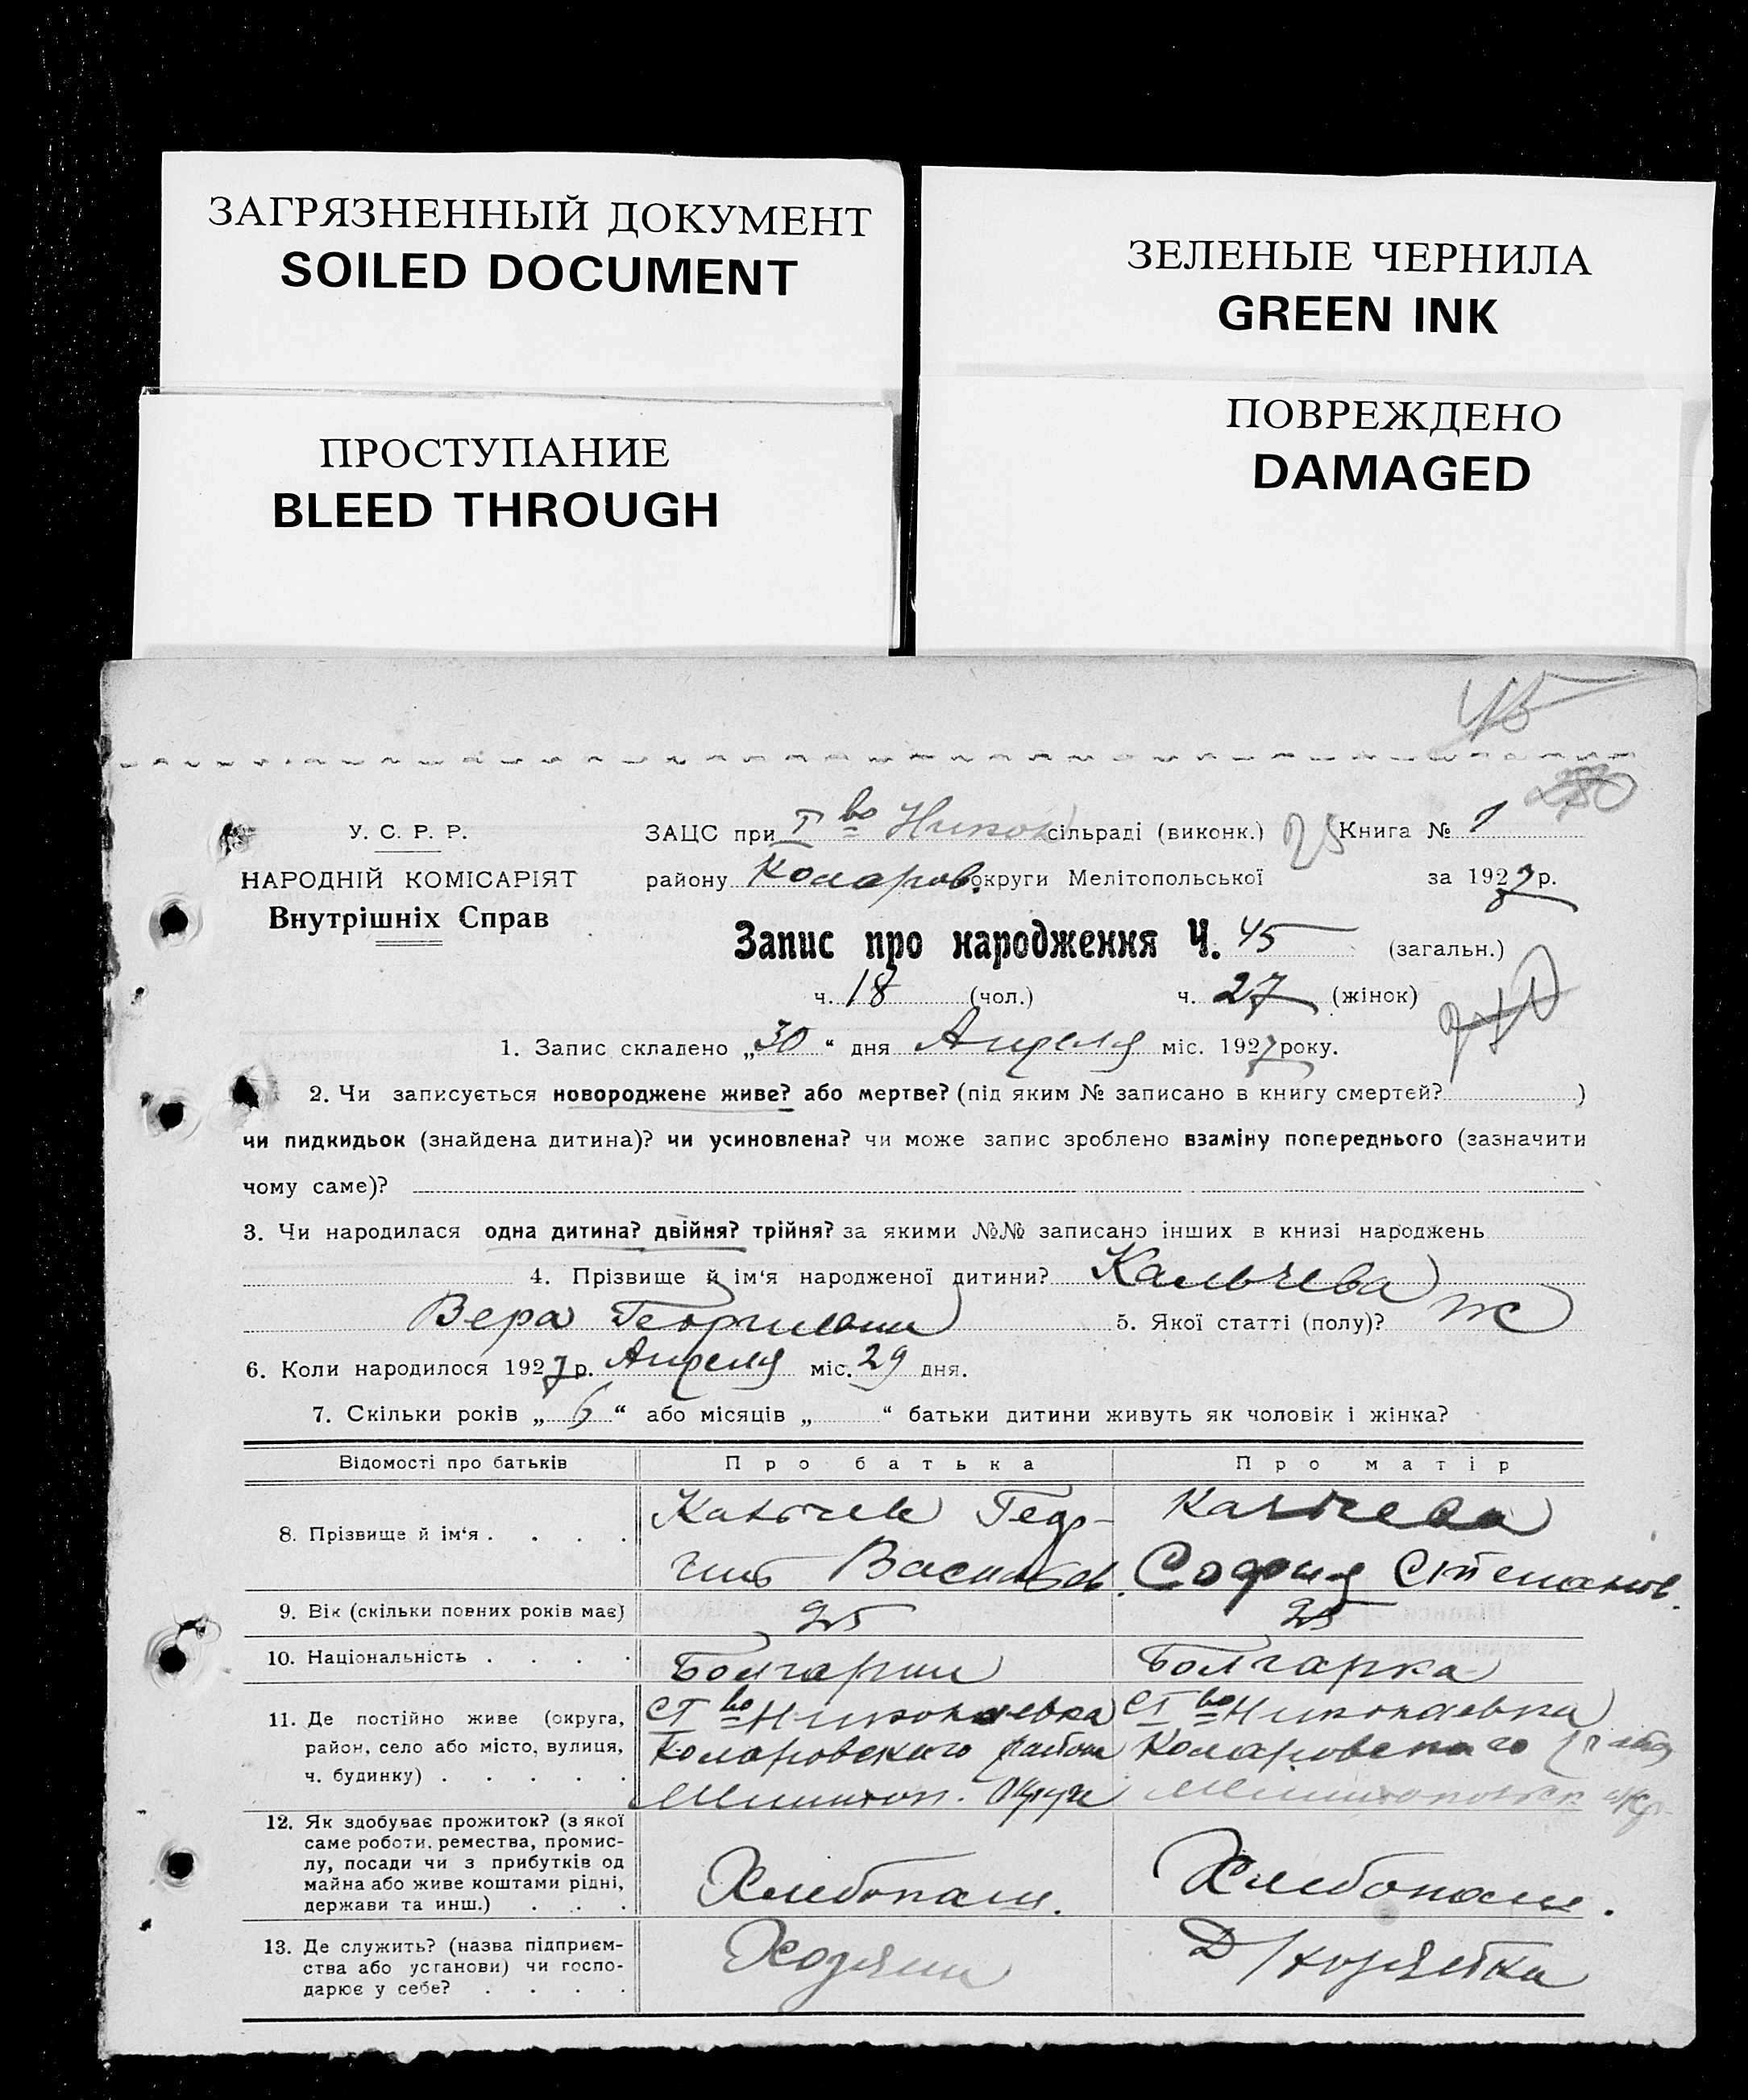 ЗАГРЯЗНЕННЫЙ ДОКУМЕНТ
SOILED DOCUMENT
ЗЕЛЕНЫЕ ЧЕРНИЛА
GREEN INK
ПРОСТУПАНИЕ
BLEED THROUGH
ПОВРЕЖДЕНО
DAMAGED
45
У. С. Р. Р.
НАРОДНІЙ КОМІСАРІЯТ
Внутрішніх Справ
ЗАЦС при сільраді (виконк.) Книга № 1
району Коларов. округи Мелітопольської за 1927 р.
Запис про народження Ч. 45 (загальн.)
ч. 18 (чол.) ч. 27 (жінок)
1. Запис складено „30“ дня Апреля міс. 1927 року.
2. Чи записується новороджене живе? або мертве? (під яким № записано в книгу смертей? )
чи пидкидьок (знайдена дитина)? чи усиновлена? чи може запис зроблено взаміну попереднього (зазначити
чому саме)?
3. Чи народилася одна дитина? двійня? трійня? за якими №№ записано інших в книзі народжень
4. Прізвище й ім‘я народженої дитини? Кальчева
Вера Георгиевна 5. Якої статті (полу)? ж
6. Коли народилося 1927 р. Апреля міс. 29 дня.
7. Скільки років „6“ або місяців „ “ батьки дитини живуть як чоловік і жінка?
Відомості про батьків Про батька Про матір
8. Прізвище й ім‘я . . . . Кальчев Геор- Кальчева
гий Васильев. София Степанов.
9. Вік (скільки повних років має) 25 25
10. Національність . . . . Болгарин Болгарка
11. Де постійно живе (округа, район, село або місто, вулиця, ч. будинку) . . . . .
Николаевка Николаевка
Коларовского района Коларовского
Мелитоп. Округи
12. Як здобуває прожиток? (з якої саме роботи, ремества, промислу, посади чи з прибутків од майна або живе коштами рідні, держави та инш.) . . .
Хлебопаш. Хлебопаш.
13. Де служить? (назва підприємства або установи) чи господарює у себе? . . . .
Хозяин Д/хозяйка